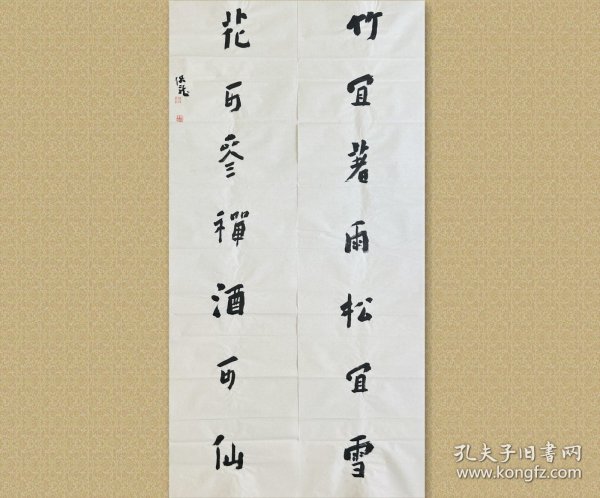 竹宜著雨松宜雪
花可參禪酒可仙
孔夫子旧书网
www.kongfz.com